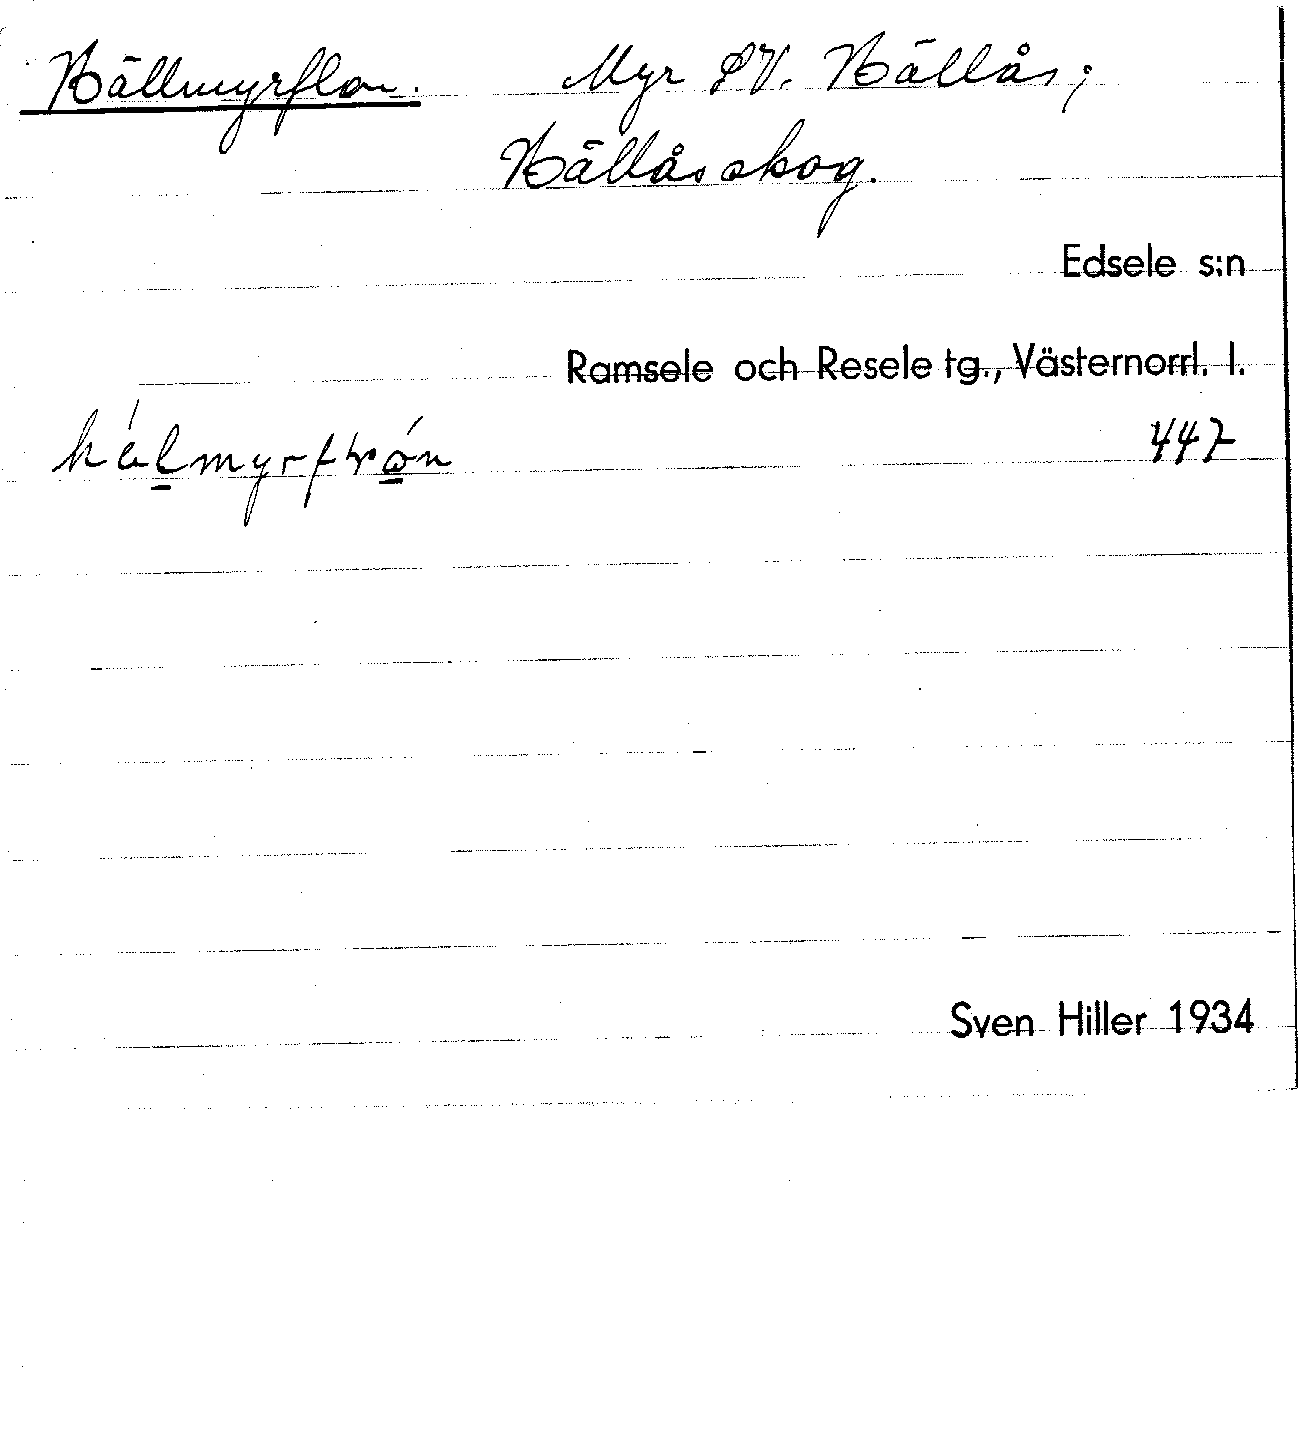 Hällmyrflon. Myr SV. Hällås;
Hällåsskog.
Edsele s:n
Ramsele och Resele tg., Västernorrl. l.
447
Sven Hiller 1934